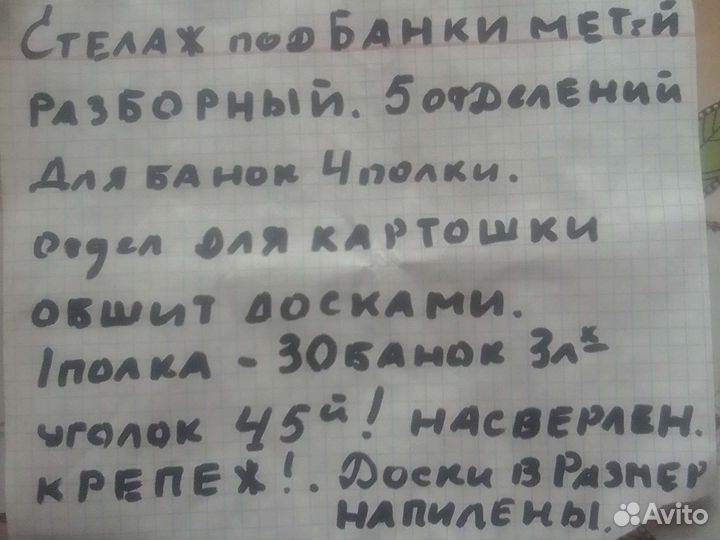 Стелаж под банки мет-й
разборный. 5 отделений
для банок 4 полки.
отдел для картошки
обшит досками.
1 полка - 30 банок 3лх
уголок 45й! насверлен.
крепеж!. Доски в размер
напилены.
Avito